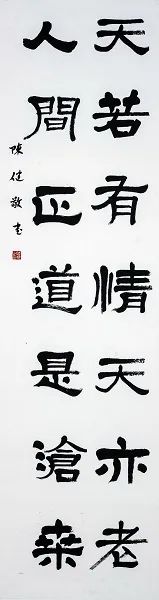 天若有情天亦老
人間正道是滄桒
陳健敬書